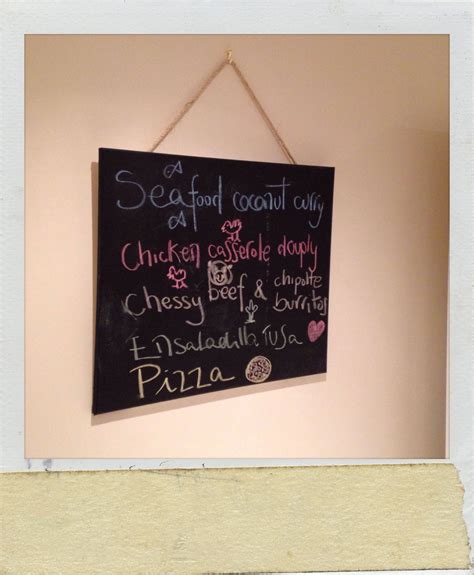 Seafood coconut curry
Chicken casserole douply
Chessy beef & chipolte burritos
Ensaladilla rusa
Pizza